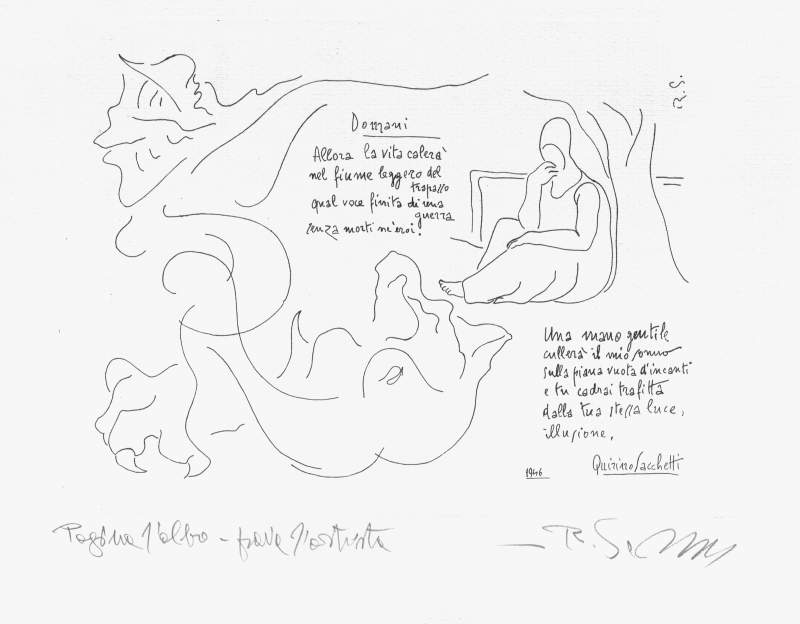 R.S.
Domani
Allora la vita calerà
nel fiume leggero del
trapasso
qual voce finita di una
guerra
senza morti nè eroi.
Una mano gentile
cullerà il mio sonno
sulla piana vuota d'incanti
e tu cadrai trafitta
dalla tua stessa luce,
illusione.
1946
Quirino Sacchetti
Pagina d'albo - prova d'artista
R.